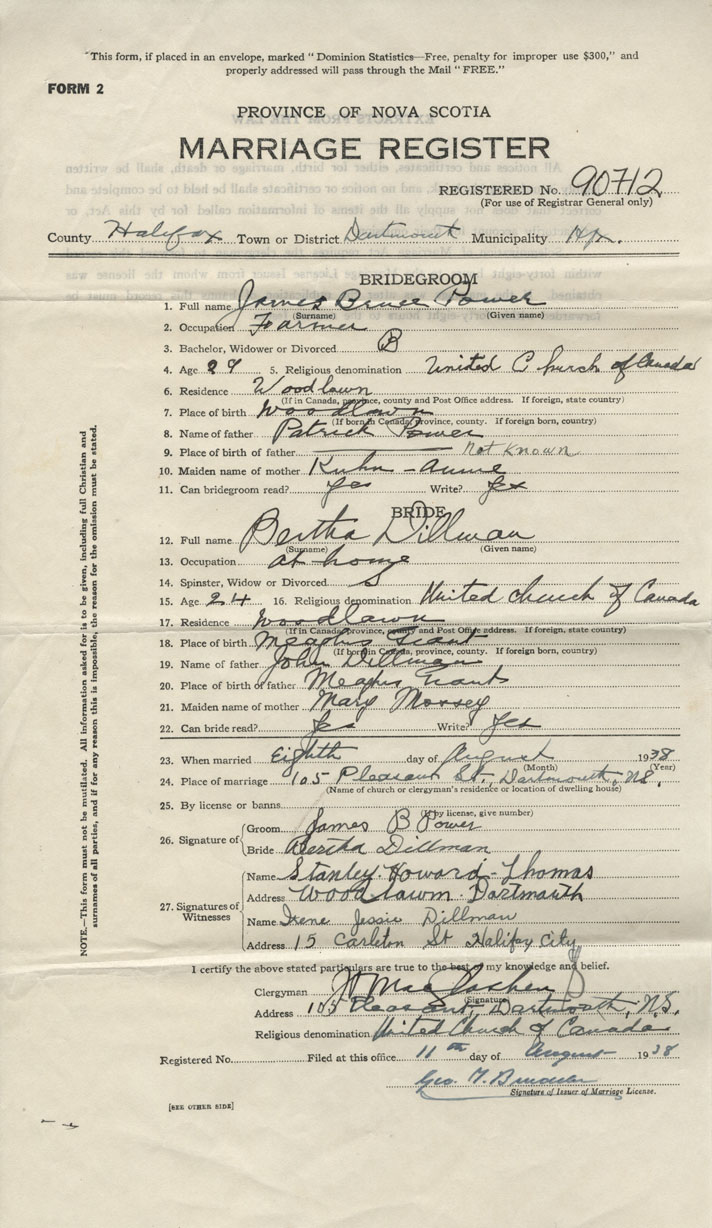 "This form, if placed in an envelope, marked "Dominion Statistics—Free, penalty for improper use $300," and
properly addressed will pass through the Mail "FREE."
FORM 2
PROVINCE OF NOVA SCOTIA
MARRIAGE REGISTER
REGISTERED No. 90712
(For use of Registrar General only)
County Halifax Town or District Dartmouth Municipality Hfx.
BRIDEGROOM
1. Full name James Bruce Power
(Surname) (Given name)
2. Occupation Farmer
3. Bachelor, Widower or Divorced B
4. Age 29 5. Religious denomination United Church of Canada
6. Residence Woodlawn
(If in Canada, province, county and Post Office address. If foreign, state country)
7. Place of birth Woodlawn
(If born in Canada, province, county. If foreign born, country)
8. Name of father Patrick Power
9. Place of birth of father Not Known
10. Maiden name of mother Kuhn - Annie
11. Can bridegroom read? Yes Write? Yes
BRIDE
12. Full name Bertha Dillman
(Surname) (Given name)
13. Occupation at home
14. Spinster, Widow or Divorced S
15. Age 24 16. Religious denomination United church of Canada
17. Residence Woodlawn
(If in Canada, province, county and Post Office address. If foreign, state country)
18. Place of birth Meaghs Grant
(If born in Canada, province, county. If foreign born, country)
19. Name of father John Dillman
20. Place of birth of father Meaghs Grant
21. Maiden name of mother Mary
22. Can bride read? Yes Write? Yes
23. When married Eighth day of August 1938
(Month) (Year)
24. Place of marriage 105 Pleasant St. Dartmouth, N.S.
(Name of church or clergyman's residence or location of dwelling house)
25. By license or banns
(If by license, give number)
26. Signature of
Groom James B Power
Bride Bertha Dillman
27. Signatures of Witnesses
Name Stanley Howard Thomas
Address Woodlawn Dartmouth
Name Irene Jessie Dillman
Address 15 Carleton St Halifax City
I certify the above stated particulars are true to the best of my knowledge and belief.
Clergyman
(Signature)
Address 105 Pleasant, Dartmouth, N.S.
Religious denomination United Church of Canada
Registered No. Filed at this office 11th day of August 1938
Geo.
Signature of Issuer of Marriage License.
[SEE OTHER SIDE]
NOTE.—This form must not be mutilated. All information asked for is to be given, including full Christian and
surnames of all parties, and if for any reason this is impossible, the reason for the omission must be stated.